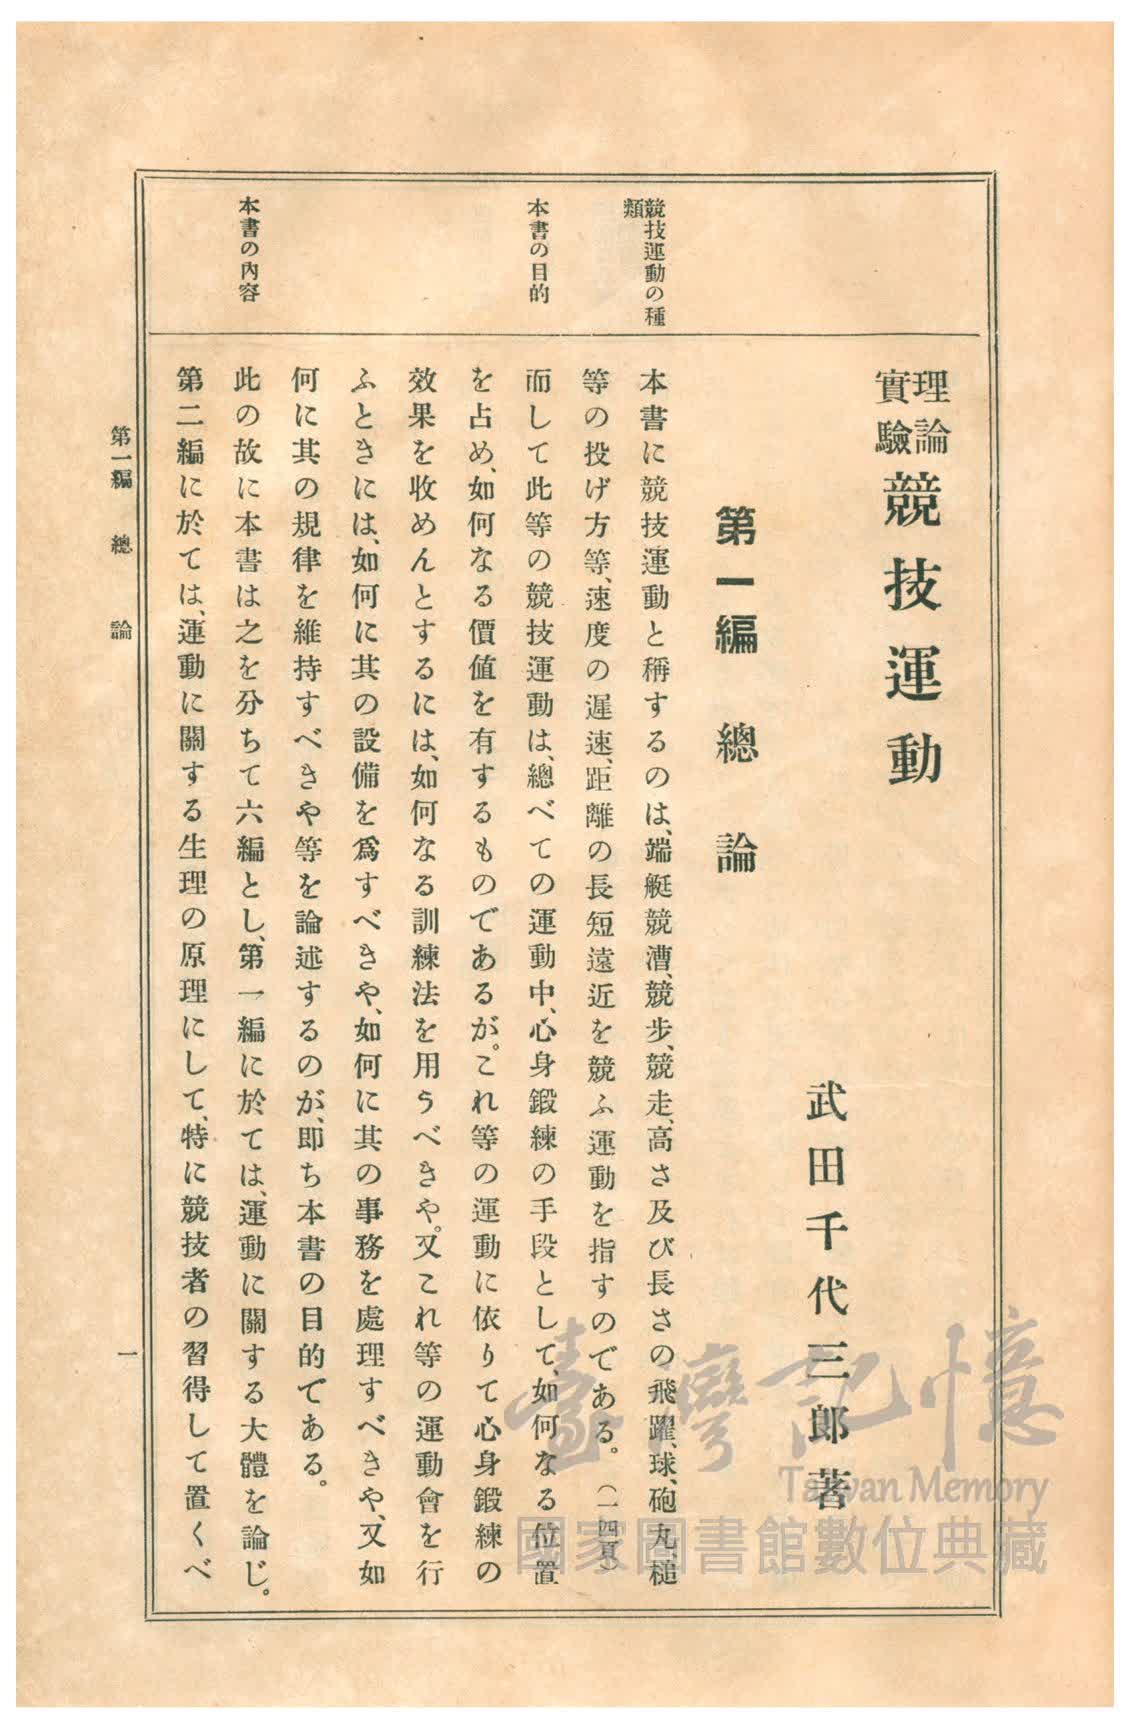 理論
實驗
競技運動
武田千代三郎著
第一編　總　論
競技運動の種
類
本書に競技運動と稱するのは、端艇競漕、競步、競走、高さ及び長さの飛躍、球、砲丸、槌
等の投げ方等、速度の遲速、距離の長短遠近を競ふ運動を指すのである。（一四頁）
本書の目的
而して此等の競技運動は、總べての運動中、心身鍛練の手段として、如何なる位置
を占め、如何なる價値を有するものであるが。これ等の運動に依りて心身鍛練の
效果を收めんとするには、如何なる訓練法を用うべきや。又これ等の運動會を行
ふときには、如何に其の設備を爲すべきや、如何に其の事務を處理すべきや、又如
何に其の規律を維持すべきや等を論述するのが、即ち本書の目的である。
本書の內容
此の故に本書は之を分ちて六編とし、第一編に於ては、運動に關する大體を論じ。
第二編に於ては、運動に關する生理の原理にして、特に競技者の習得して置くべ
第一編　總　論
一
臺灣記憶
Taiwan Memory
國家圖書館數位典藏